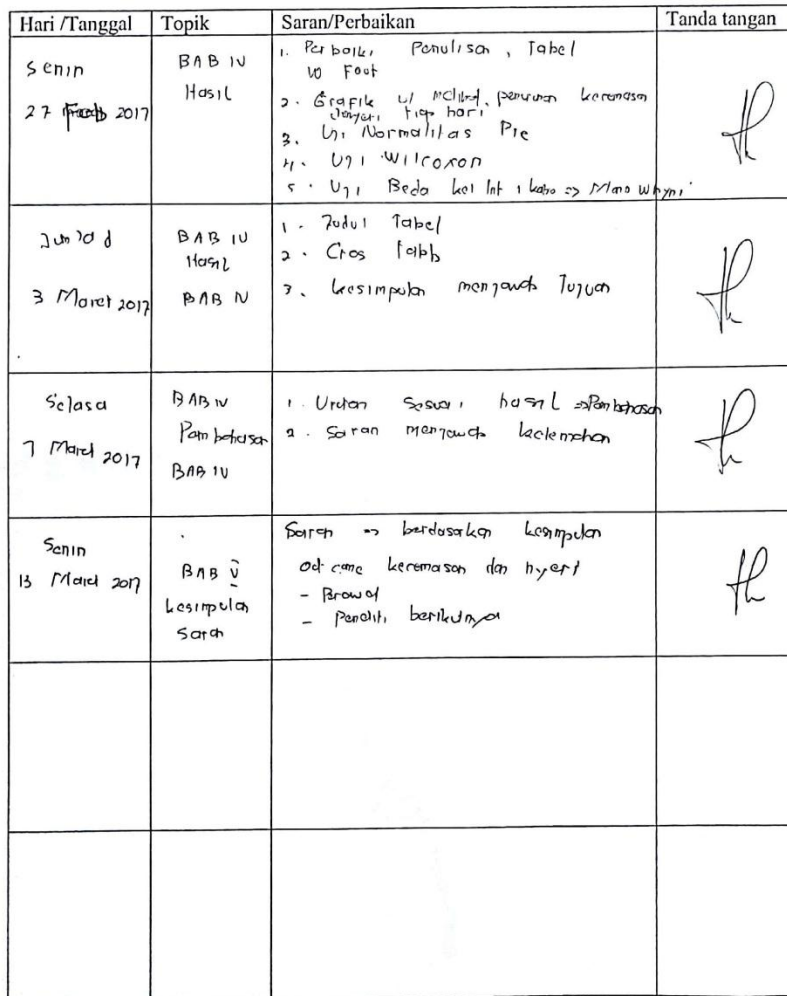 Hari /Tanggal Topik Saran/Perbaikan Tanda tangan
Senin
27 2017
BAB IV
Hasil
1. Perbaiki Penulisan, Tabel
10 Font
2. Grafik u/ melihat penurunan kecemasan
tiap hari
3. Uji Normalitas Pre
4. Uji Wilcoxon
5. Uji Beda kel Int => Mann Whyni
Jum'ad
3 Maret 2017
BAB IV
Hasil
BAB IV
1. Judul Tabel
2. Cros tabb
3. kesimpulan menjawab Tujuan
Selasa
7 Maret 2017
BAB IV
Pembahasan
BAB IV
1. Urutan Sesuai hasil => Pembahasan
2. Saran menjawab kelemahan
Senin
13 Maret 2017
BAB V
kesimpulan
Saran
Saran => berdasarkan kesimpulan
kecemasan dan nyeri
- Peneliti berikutnya